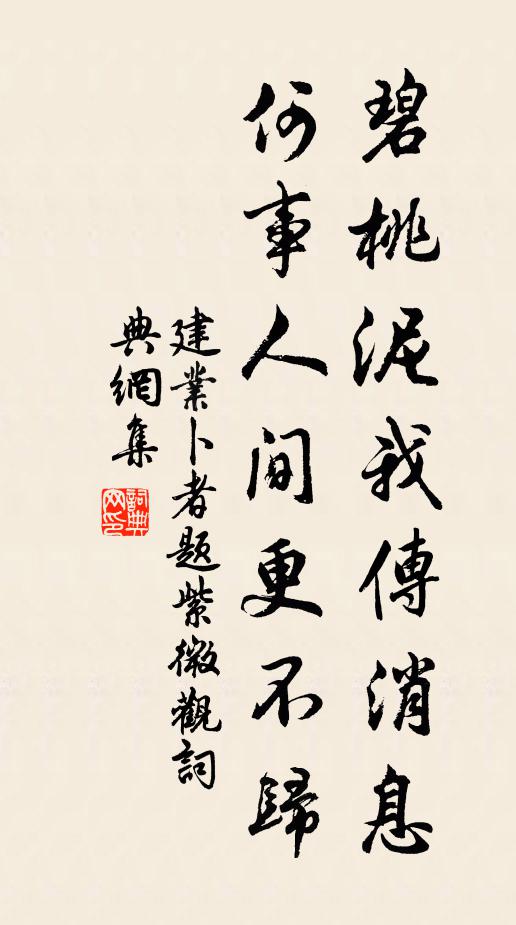 碧桃泥我傳消息
何事人間更不歸
建業卜者題紫微觀詞
典網集
詞典网印